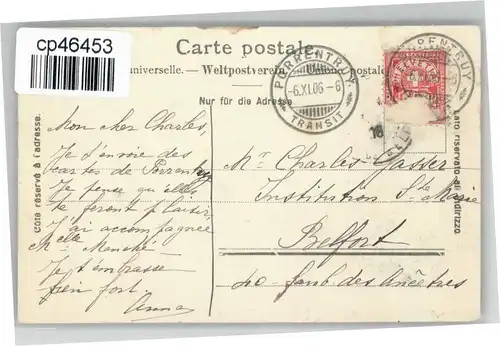 cp46453
Carte postale.
universelle. — Weltpostverein. — Unione postale
Nur für die Adresse.
Côté réservé à l'adresse.
Lato riservato all'indirizzo
PORRENTRUY
-6.XI.06-6
TRANSIT
PORRENTRUY
HELVETIA
Mon cher Charles,
Je t'envoie des
cartes de Porrentruy
Je pense qu'elles
te feront plaisir,
J'ai accompagnée
Melle
Je t'embrasse
bien fort.
Anna
Mr Charles Gasser
Institution Ste Marie
Belfort
40 - faub. des Ancêtres